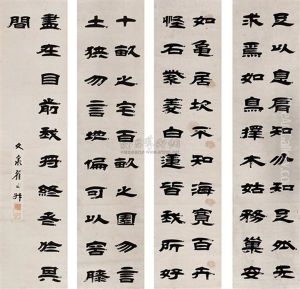 十畝之宅百畝之園勿言
土狹勿言地偏可以容膝
足以息肩知足外无
求焉如鳥擇木姑務巢安
如龜居坎不知海寬百卉
怪石紫菱白蓮皆我所好
盡在目前我將終老於其
間